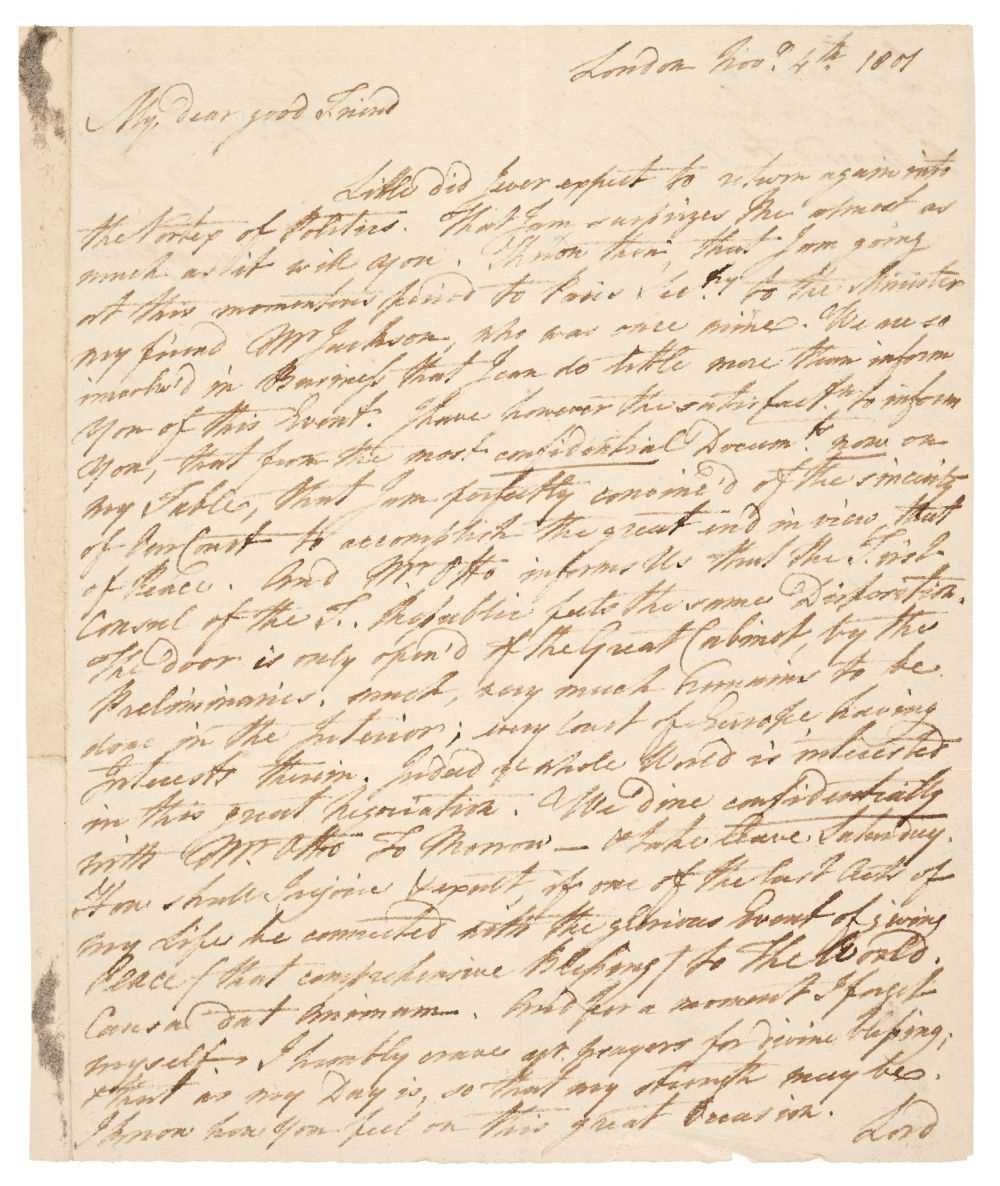 London Novr. 4th 1801
My, dear good Friend
Little did I ever expect to return again into
the Vortex of Politics. That I am surprizes Me almost as
much as it will you. Know then, that I am going
at this momentous period to Paris Secry to the Minister
my friend Mr Jackson, who was once mine. We are so
involv'd in Business that I can do little more than inform
You of this Event. I have however the satisfactn. to inform
You, that from the most confidential Documts now on
my Table, that I am perfectly convinc'd of the sincerity
of Our Court to accomplish the great end in view, that
of Peace. And Mr. Otto informs Us that the First
Consul of the F. Republic feels the same Disposition.
The door is only open'd of the Great Cabinet, by the
Preliminaries. much, very much remains to be
done in the Interior; every Court of Europe having
Interests therein. Indeed ye whole World is interested
in this great Negociation. We dine confidentially
with Mr. Otto To Morrow — & take leave Saturday.
How shall I rejoice & exult, if one of the last Acts of
my Life be connected with the glorious Event of giving
Peace / that comprehensive Blessing / to The World.
Causa dat Animam. And for a moment I forget
myself. I humbly crave yr. prayers for divine blessing;
& that as my Day is, so that my strength may be.
I know how You feel on this great Occasion.
Lord